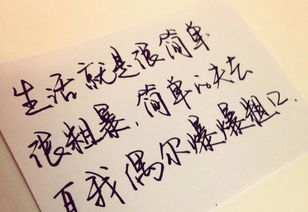 生活就是很简单
很粗暴，简单的失去
自我偶尔爆爆粗口。